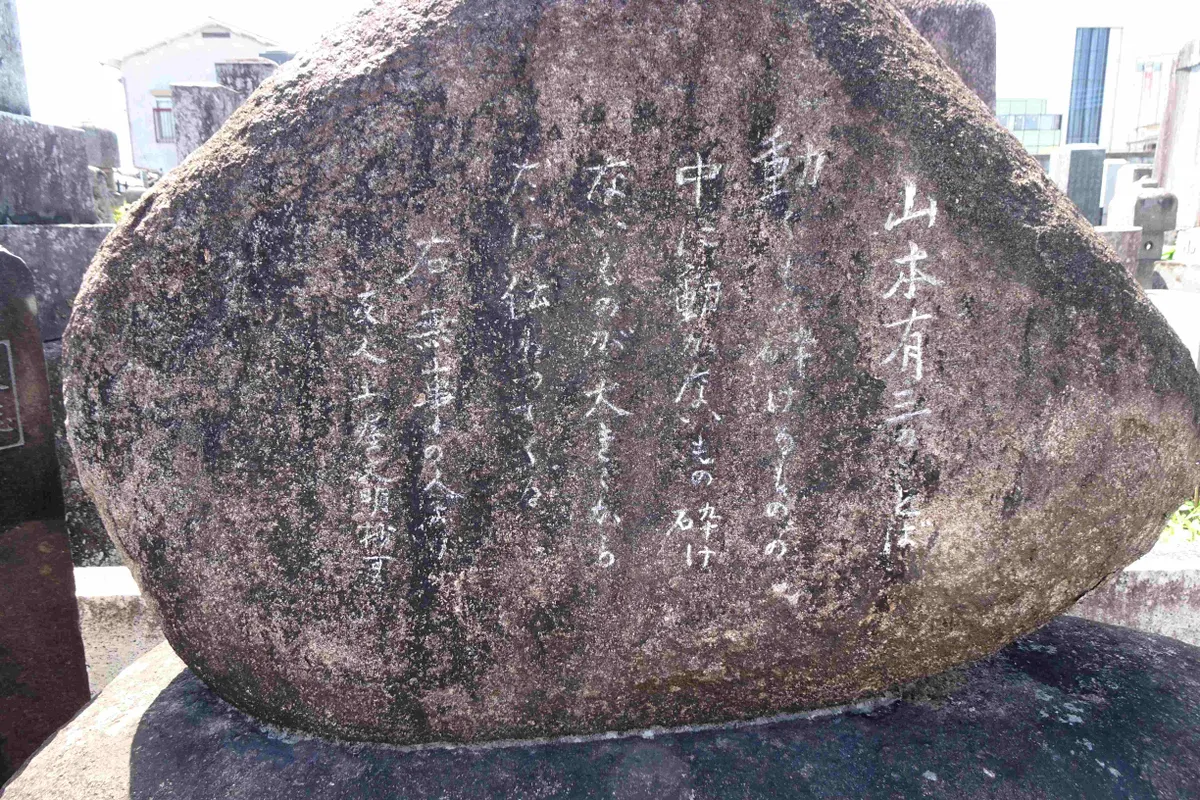 山本有三のことば
動くもの砕けるものの
中に動かないもの砕け
ないものが大きくから
だに伝わってくる
右無事の人より
友人土屋文明抄す